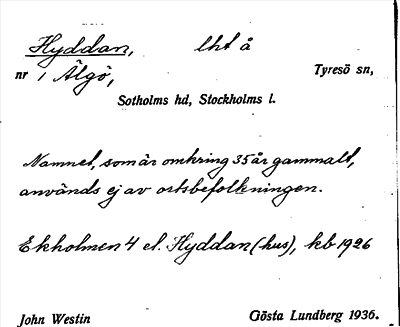 Hyddan, lht å
nr 1 Älgö, Tyresö sn,
Sotholms hd, Stockholms l.
Namnet, som är omkring 35 år gammalt,
används ej av ortsbefolkningen.
Ekholmen 4 el. Hyddan (hus), kb 1926
John Westin Gösta Lundberg 1936.